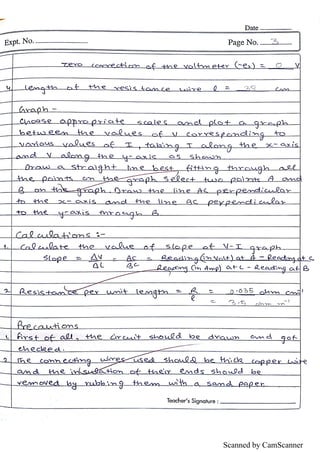 Date
Expt. No.
Page No. 3
zero correction of the voltmeter (-e2) = 0 V
4. Length of the resistance wire l = 28 cm
Graph -
Choose appropriate scales and plot a graph
between the values of V corresponding to
various values of I, taking I along the x-axis
and V along the y-axis as shown.
Draw a straight line best, fitting through all
the points on the graph. Select two points A and
B on the graph. Draw the line AC perpendicular
to the x-axis and the line BC perpendicular
to the y-axis through B
Calculations :-
1. Calculate the value of slope of V-I graph
Slope = ΔV = AC = Reading (in Volt) at A - Reading at C
ΔI BC Reading (in Amp) at C - Reading at B
2. Resistance per unit length = R = 0.035 ohm cm⁻¹
l = 3.5 ohm m⁻¹
Precautions
1. First of all, the circuit should be drawn and got
checked.
2. The connecting wires used should be thick copper wire
and the insulation of their ends should be
removed by rubbing them with a sand paper.
Teacher's Signature :
Scanned by CamScanner